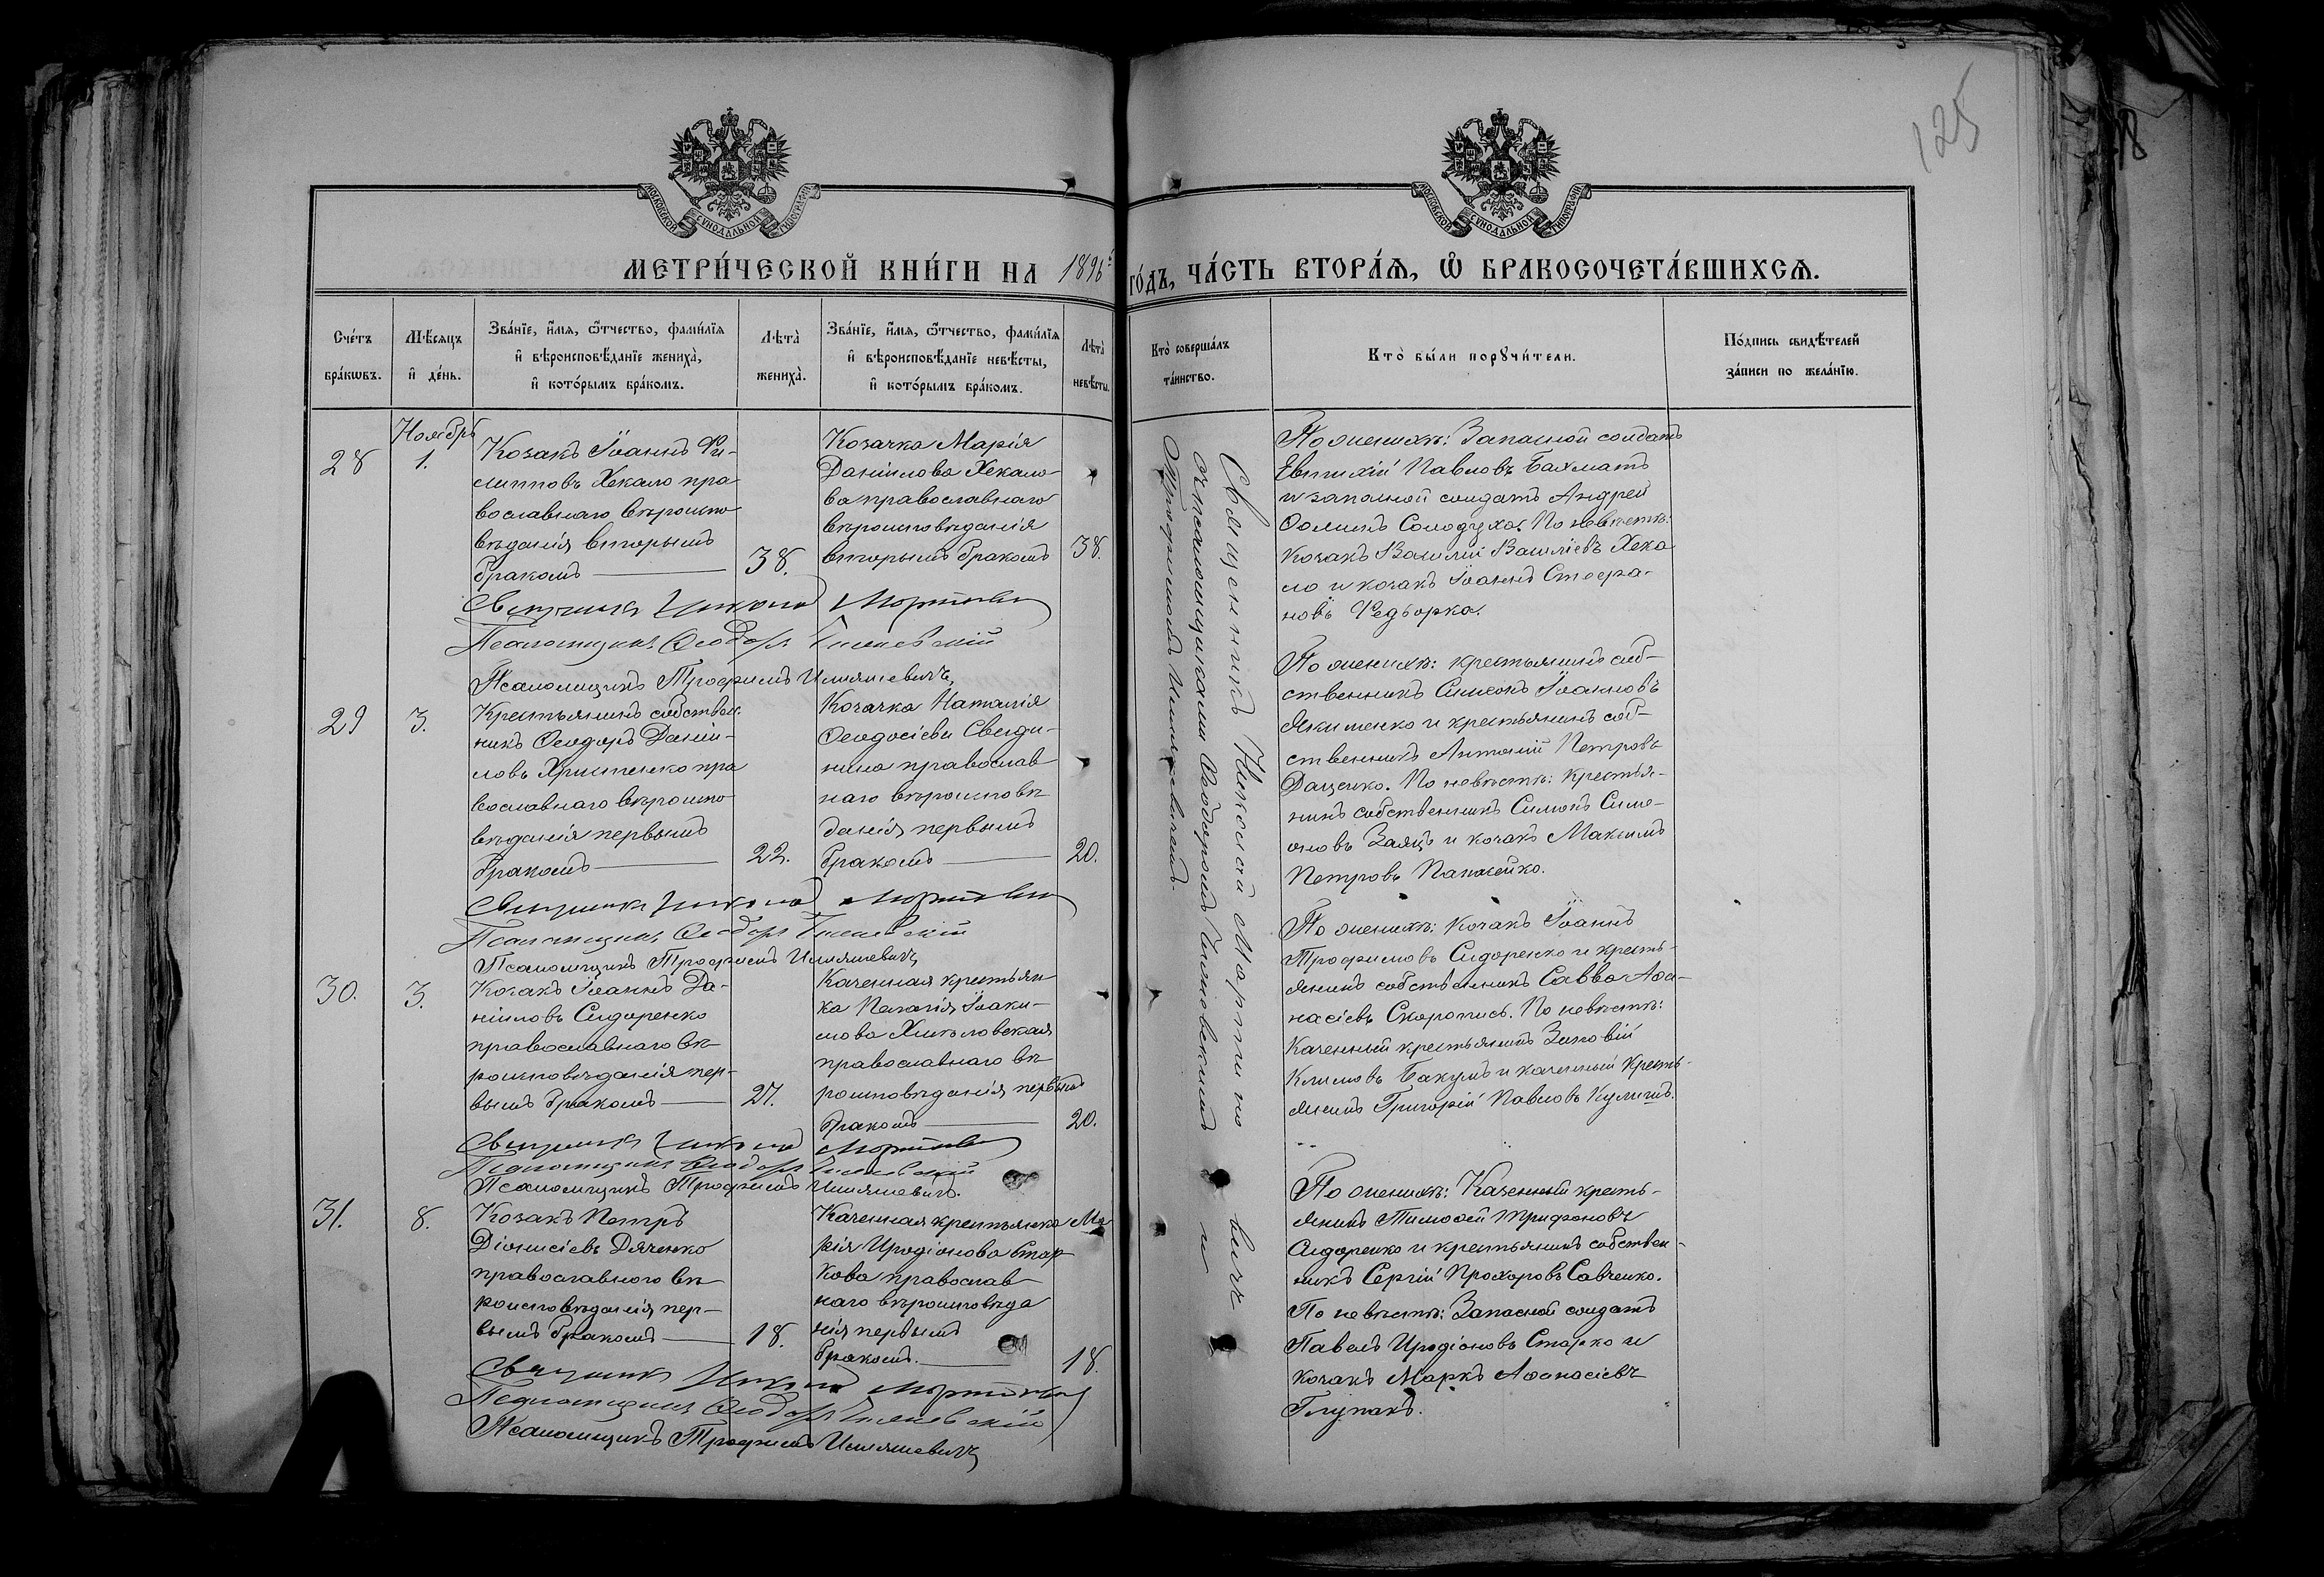 125
18
МОСКОВСКОЙ СѴНОДАЛЬНОЙ ТИПОГРАФІИ
МОСКОВСКОЙ СѴНОДАЛЬНОЙ ТИПОГРАФІИ
МЕТРИ́ЧЕСКОЙ КНИ́ГИ НА 1896й ГО́ДЪ, ЧА́СТЬ ВТОРА́Ѧ, Ѡ҆ БРАКОСОЧЕТА́ВШИХСѦ.
Сче́тъ
бра́кѡвъ.
Мѣ́сяцъ
и҆ де́нь.
Зва́нїе, и҆́мѧ, ѻ҆́тчество, фами́лїѧ
и҆ вѣроисповѣ́данїе жениха̀,
и҆ кото́рымъ бра́комъ.
Лѣта̀
жениха̀.
Зва́нїе, и҆́мѧ, ѻ҆́тчество, фами́лїѧ
и҆ вѣроисповѣ́данїе невѣ́сты,
и҆ кото́рымъ бра́комъ.
Лѣта̀
невѣ́сты.
Кто̀ соверша́лъ
та́инство.
Кто̀ бы́ли порꙋчи́тели.
По́дпись свидѣ́телей
за́писи по жела́нїю.
28
Ноябрь
1.
Козакъ Іоаннъ Фи-
липповъ Хекало пра
вославнаго вѣроиспо
вѣданія вторымъ
бракомъ
38.
Козачка Марія
Даніилова Хекало-
ва православнаго
вѣроисповѣданія
вторымъ бракомъ
38.
Священникъ Николай Мортиновичъ и
псаломщиками Ѳеодоромъ и
Трофимомъ
По женихѣ: Запасной солдатъ
Евтихій Павловъ Бахматъ
и запасной солдатъ Андрей
Ѳоминъ Солодухо. По невѣстѣ:
Козакъ Василій Василіевъ Хека
ло и козакъ Іоаннъ Стефа-
новъ Федорка.
Священникъ Николай Мортиновичъ
Псаломщикъ Ѳеодоръ
Псаломщикъ Трофимъ
29
3.
Крестьянинъ собствен.
никъ Ѳеодоръ Даніи-
ловъ Христенко пра
вославнаго вѣроиспо
вѣданія первымъ
бракомъ
22.
Козачка Наталія
Ѳеодосіева
нина православ
наго вѣроисповѣ
данія первымъ
бракомъ
20.
По женихѣ: крестьянинъ соб-
ственникъ Симеонъ Іоанновъ
Якименко и крестьянинъ соб-
ственникъ Антоній Петровъ
Даценко. По невѣстѣ: Крестья-
нинъ собственникъ Симонъ Симе-
оновъ Заяцъ и козакъ Максимъ
Петровъ Папжейко.
Священникъ Николай Мортиновичъ
Псаломщикъ Ѳеодоръ
Псаломщикъ Трофимъ
30.
3.
Козакъ Іоаннъ Да-
ніиловъ Сидоренко
православнаго вѣ-
роисповѣданія пер-
вымъ бракомъ
27.
Казенная крестьян-
ка Пелагія Іоаки-
мова
православнаго вѣ-
роисповѣданія первымъ
бракомъ
20.
По женихѣ: Козакъ Іоаннъ
Трофимовъ Сидоренко и кресть-
янинъ собственникъ Савва Аѳа-
насіевъ Скоропись. По невѣстѣ:
Казенный крестьянинъ Зиновій
Климовъ Бакумъ и казенный кресть-
янинъ Григорій Павловъ Кулишъ.
Священникъ Николай Мортиновичъ
Псаломщикъ Ѳеодоръ
Псаломщикъ Трофимъ
31.
8.
Козакъ Петръ
Діонисіевъ Дяченко
православнаго вѣ-
роисповѣданія пер-
вымъ бракомъ
18.
Казенная крестьянка Ма
рія Иродіонова Стар
кова православ-
наго вѣроисповѣда
нія первымъ
бракомъ.
18.
По женихѣ: Казенный кресть-
янинъ Тимоѳей Трифоновъ
Сидоренко и крестьянинъ собствен-
никъ Сергій Прохоровъ Савченко.
По невѣстѣ: Запасной солдатъ
Павелъ Иродіоновъ Старко и
козакъ Маркъ Аѳанасіевъ
Глупакъ.
Священникъ Николай Мортиновичъ
Псаломщикъ Ѳеодоръ
Псаломщикъ Трофимъ